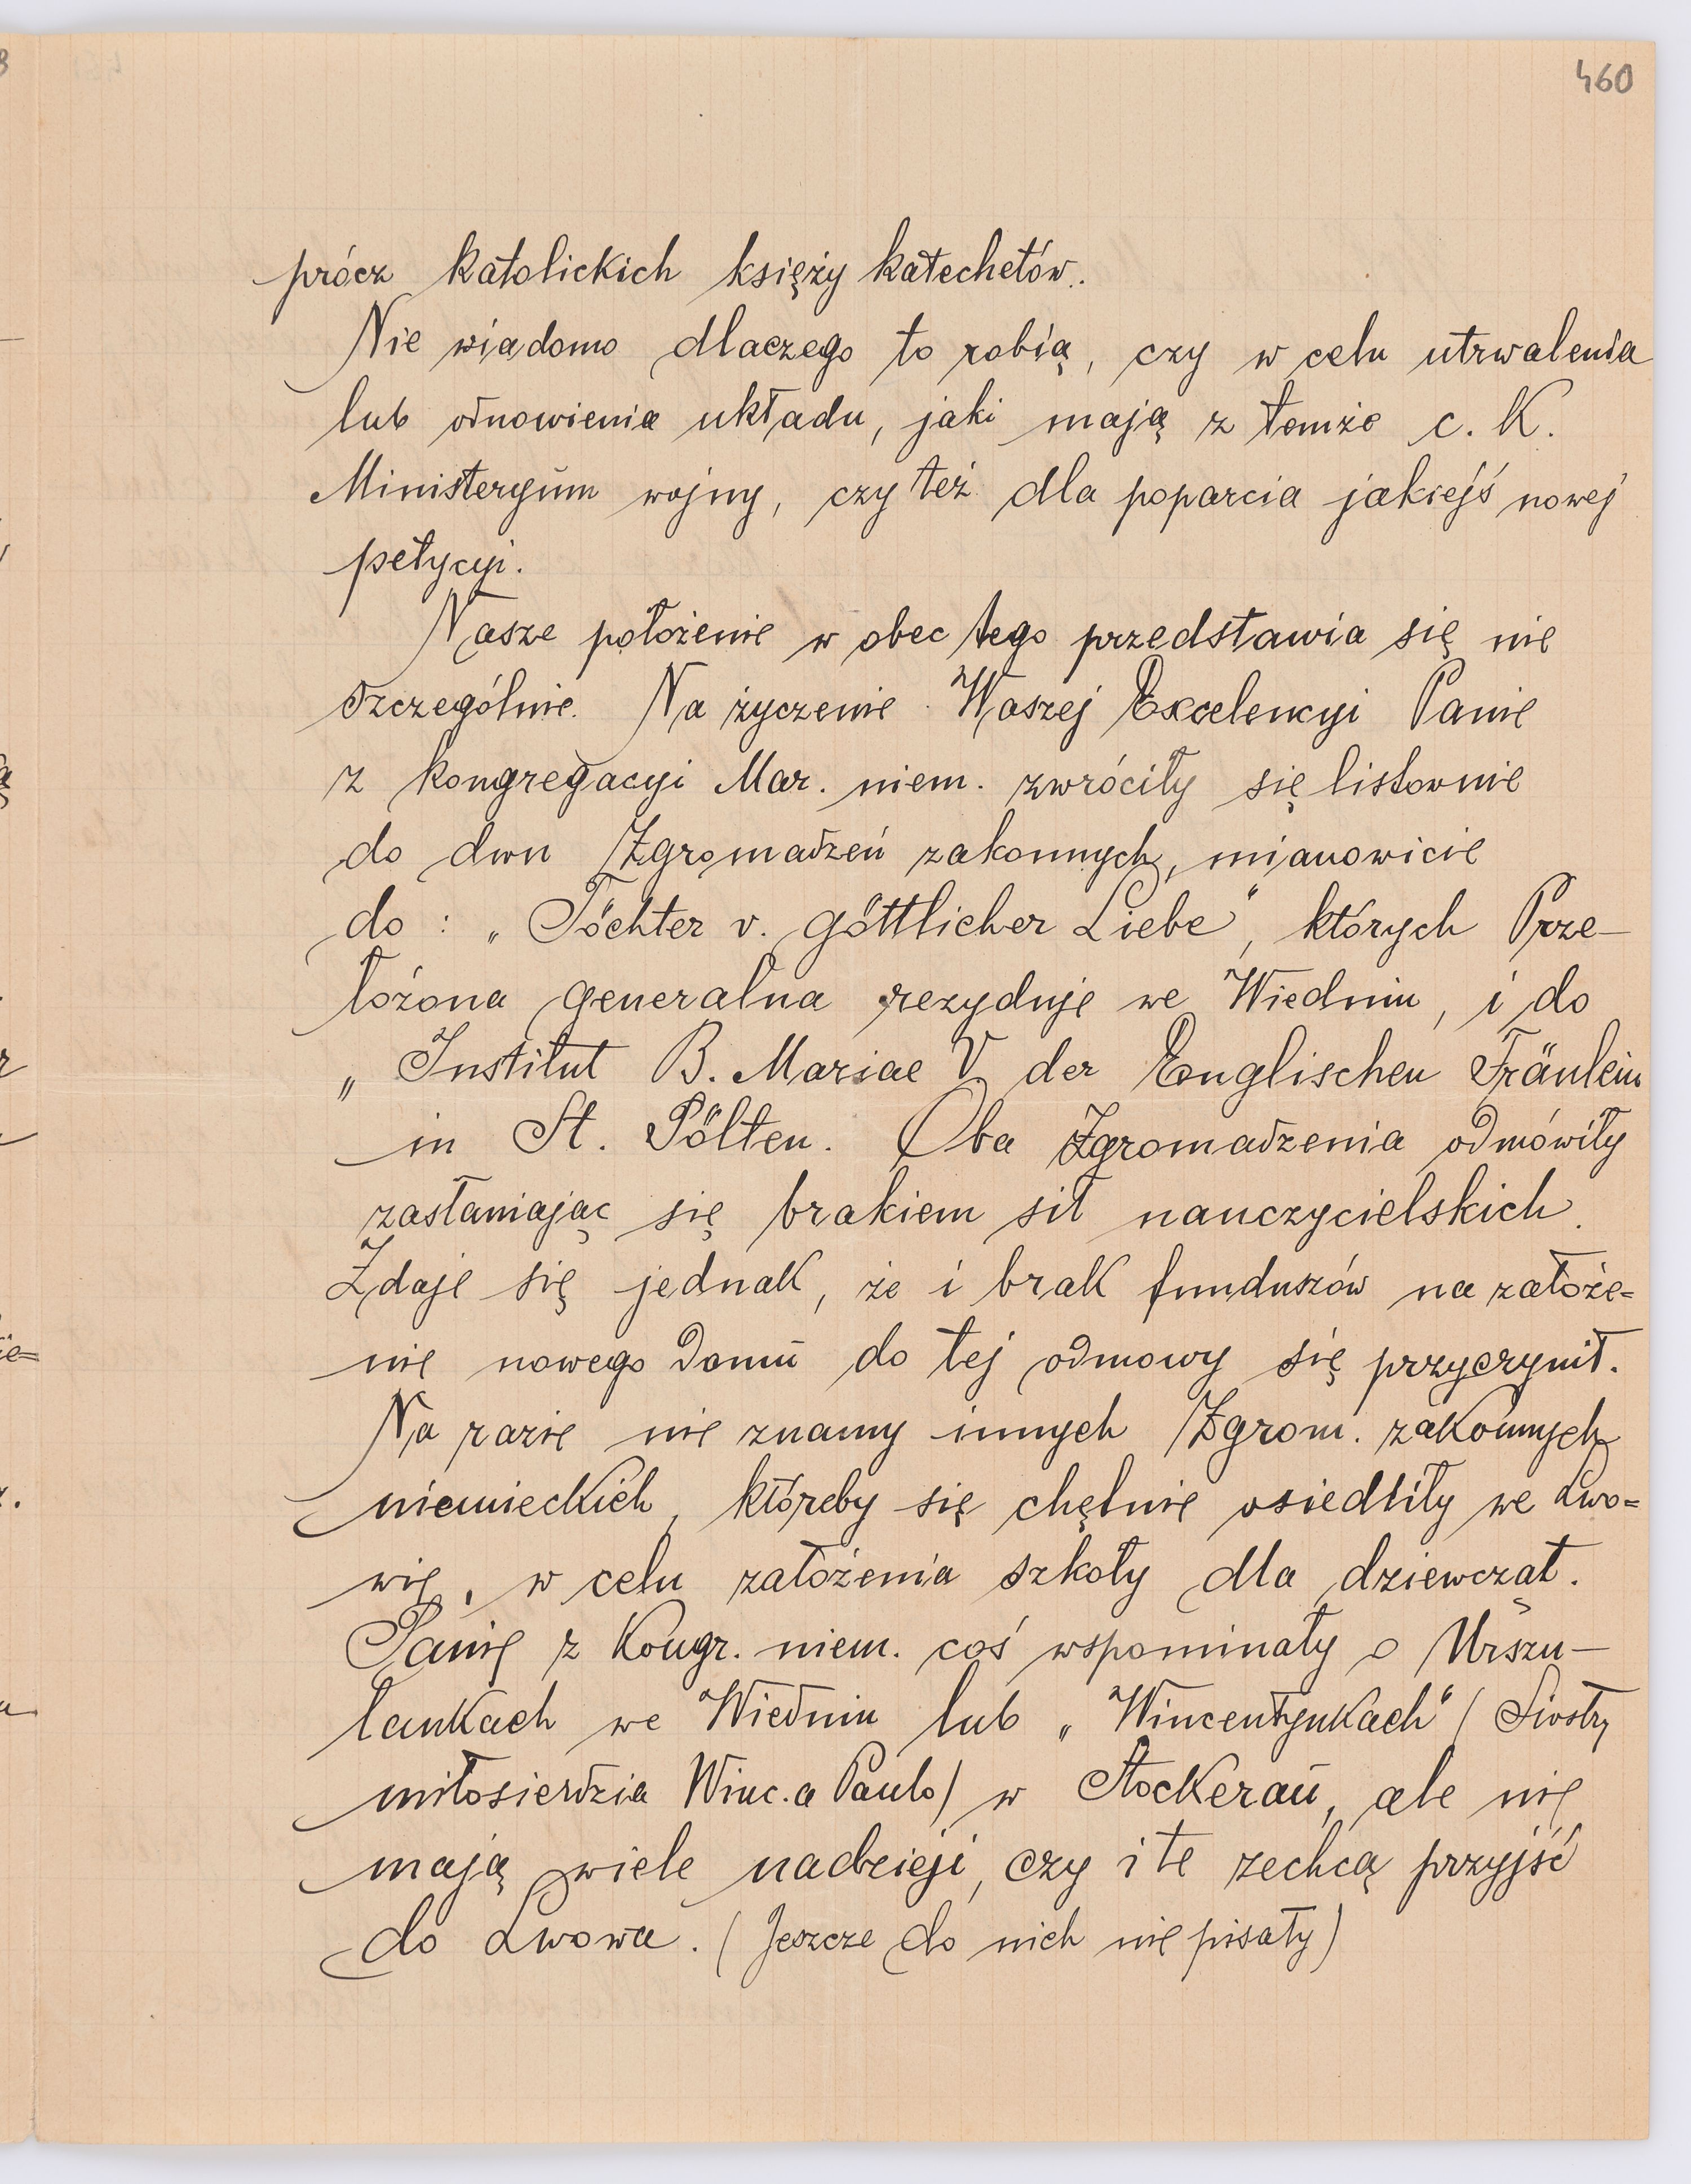 460
prócz katolickich księży katechetów.
Nie wiadomo dlaczego to robią, czy w celu utrwalenia
lub odnowienia układu, jaki mają z temże c. K.
Ministeryum wojny, czy też dla poparcia jakiejś nowej
petycyi.
Nasze położenie w obec tego przedstawia się nie
szczególnie. Na życzenie Waszej Excelencyi Panie
z kongregacyi Mar. niem. zwróciły się listownie
do dwu Zgromadzeń zakonnych, mianowicie
do : „Töchter v. göttlicher Liebe“, których Prze-
łożona generalna rezyduje we Wiedniu, i do
„Institut B. Mariae V der Englischen Fräulein
in St. Pölten. Oba Zgromadzenia odmówiły
zasłaniając się brakiem sił nauczycielskich.
Zdaje się jednak, że i brak funduszów na założe=
nie nowego domu do tej odmowy się przyczynił.
Na razie nie znamy innych Zgrom. zakonnych
niemieckich, któreby się chętnie osiedliły we Lwo=
wie, w celu założenia szkoły dla dziewcząt.
Panie z Kongr. niem. coś wspominały o Urszu-
lankach we Wiedniu lub „Wincentynkach“ (Siostry
miłosierdzia Winc. a Paulo) w Stockerau, ale nie
mają wiele nadzieji, czy i te zechcą przyjść
do Lwowa. (Jeszcze do nich nie pisały)